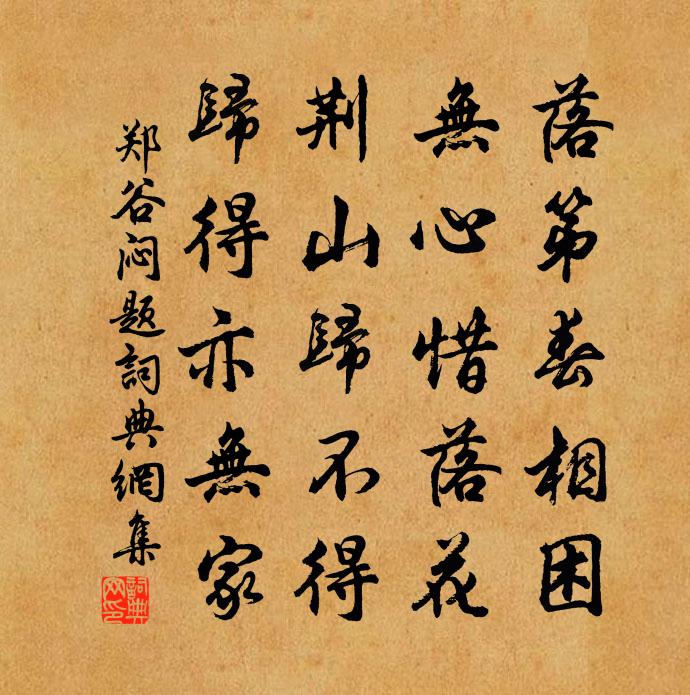 落第春相困
無心惜落花
荆山歸不得
歸得亦無家
郑谷闷题詞典網集
詞典网印